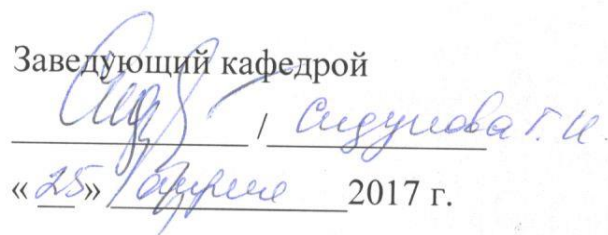 Заведующий кафедрой
/ Сидунова Г. И.
« 25 » апреля 2017 г.